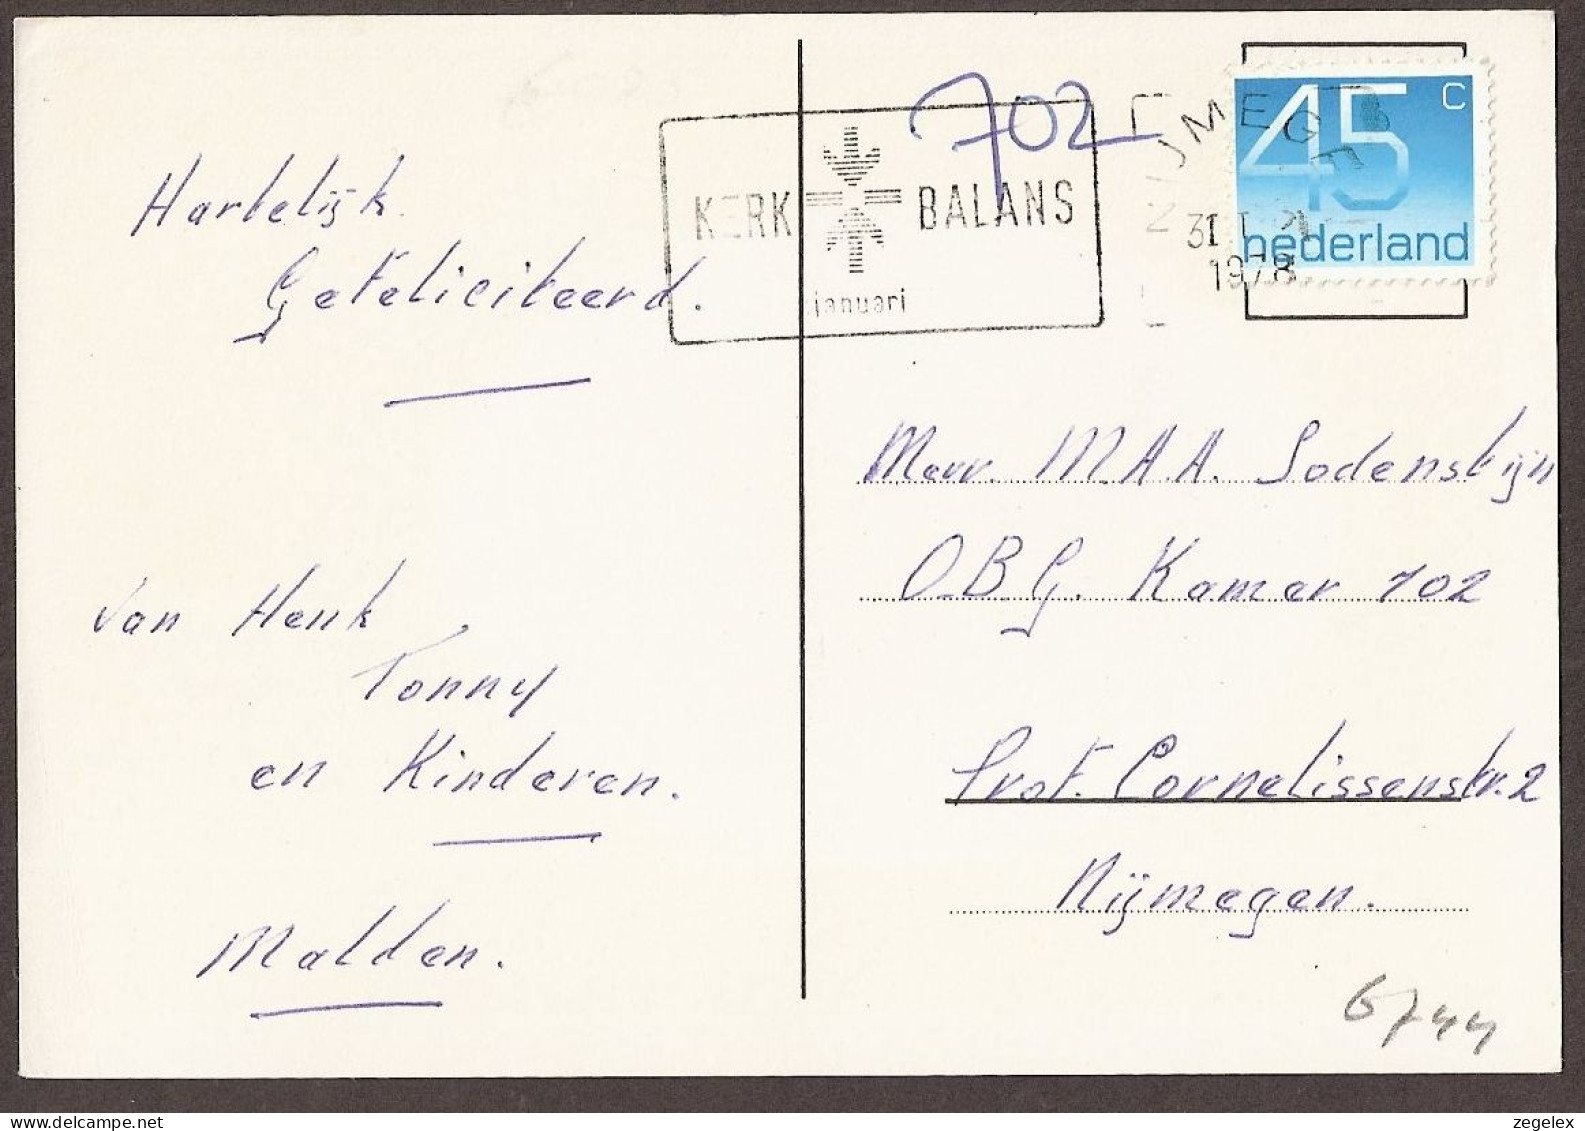 Hartelijk
Gefeliciteerd.
van Henk
Tonny
en Kinderen.
Malden.
702
KERK BALANS
januari
NIJMEGEN
31 I
1978
45 c
nederland
Mevr. M.A.A. Sodenstijn
O.B.G. Kamer 702
Prof. Cornelissenstr. 2
Nijmegen.
6744
zegelex